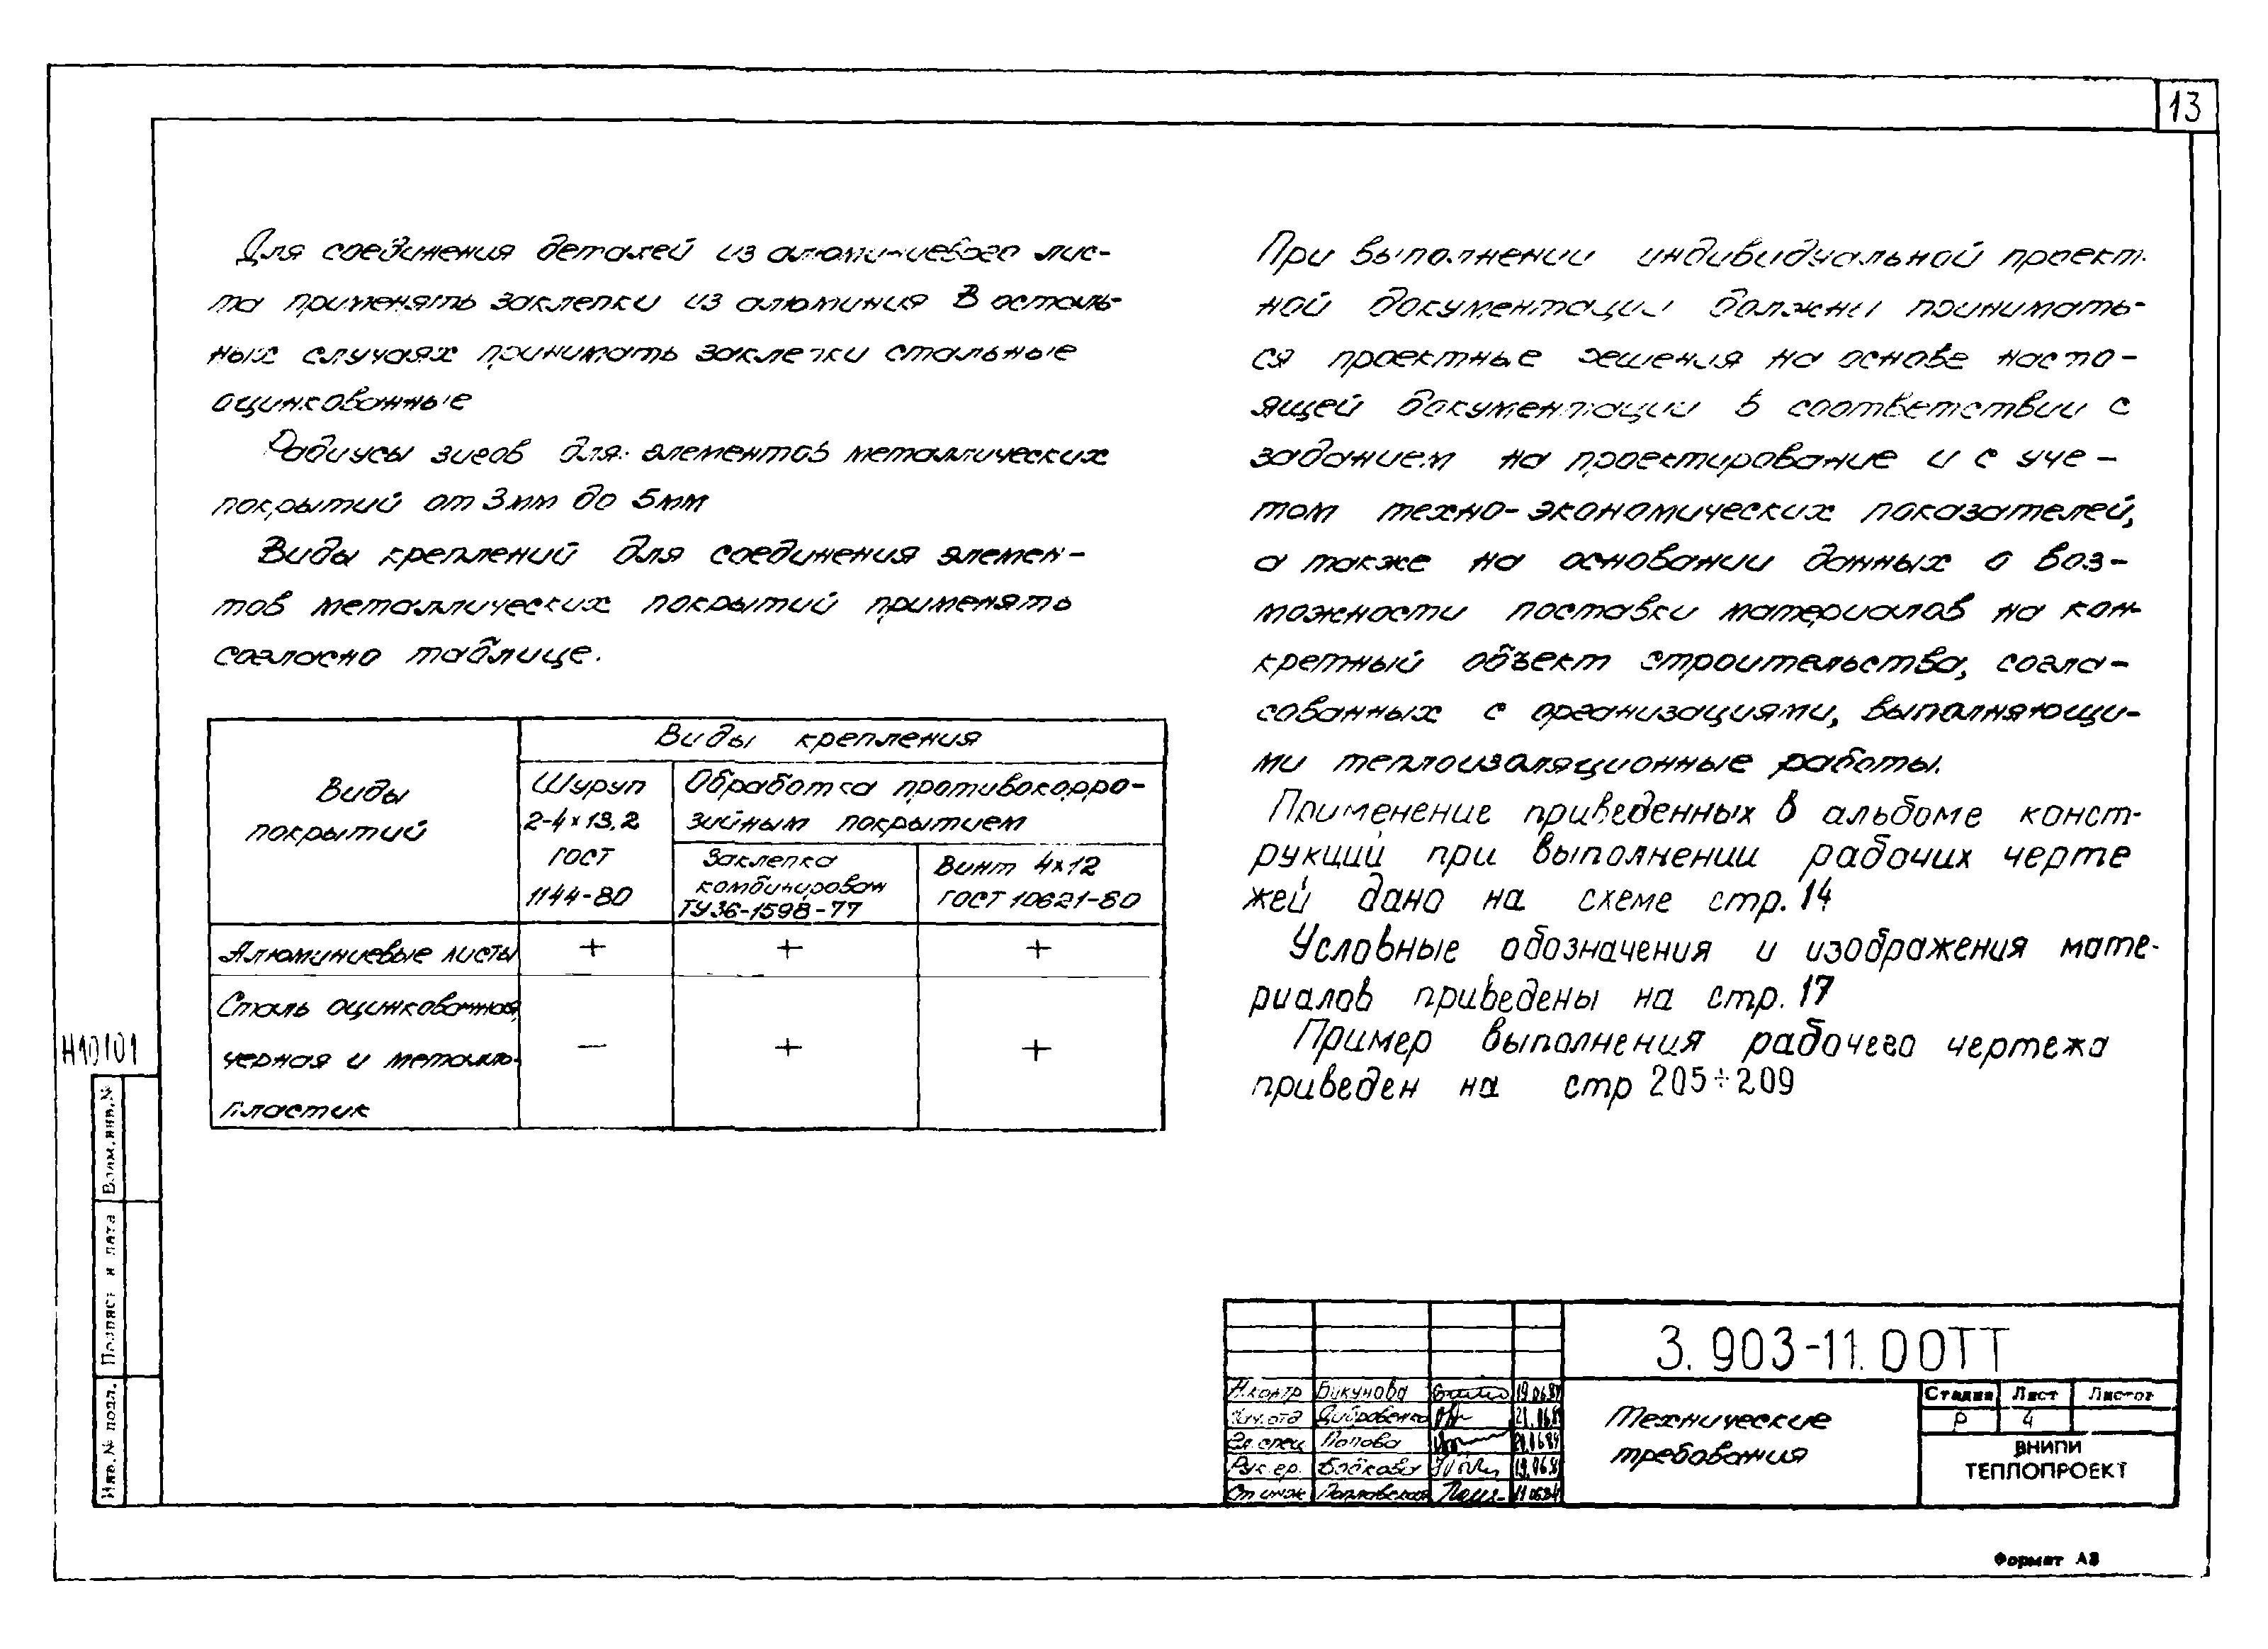 13
Для соединения деталей из алюминиевого лис-
та применять заклепки из алюминия В осталь-
ных случаях принимать заклепки стальные
оцинкованные
Радиусы зигов для элементов металлических
покрытий от 3мм до 5мм
Виды креплений для соединения элемен-
тов металлических покрытий применять
согласно таблице.
Виды
покрытий
Виды крепления
Шуруп
2-4×13,2
ГОСТ
1144-80
Обработка противокорро-
зийным покрытием
Заклепка
комбинирован
ТУ36-1598-77
Винт 4×12
ГОСТ 10621-80
Алюминиевые листы + + +
Сталь оцинкованная,
черная и металло- — + +
пластик
При выполнении индивидуальной проект-
ной документации должны принимать-
ся проектные решения на основе насто-
ящей документации в соответствии с
заданием на проектирование и с уче-
том техно-экономических показателей,
а также на основании данных о воз-
можности поставки материалов на кон-
кретный объект строительства, согла-
сованных с организациями, выполняющи-
ми теплоизоляционные работы.
Применение приведенных в альбоме конст-
рукций при выполнении рабочих черте
жей дано на схеме стр. 14
Условные обозначения и изображения мате-
риалов приведены на стр. 17
Пример выполнения рабочего чертежа
приведен на стр 205÷209
Н10101
Взам.инв.№
Подпись и дата
Инв.№ подл.
3.903-11.00ТТ
Н.контр Бикунова 19.06.84
Нач.отд 21.06.84
Гл.спец Попова 20.06.84
Рук.гр. 19.06.84
Ст инж 19.06.84
Технические
требования
Стадия Лист Листов
Р 4
ВНИПИ
ТЕПЛОПРОЕКТ
Формат А3